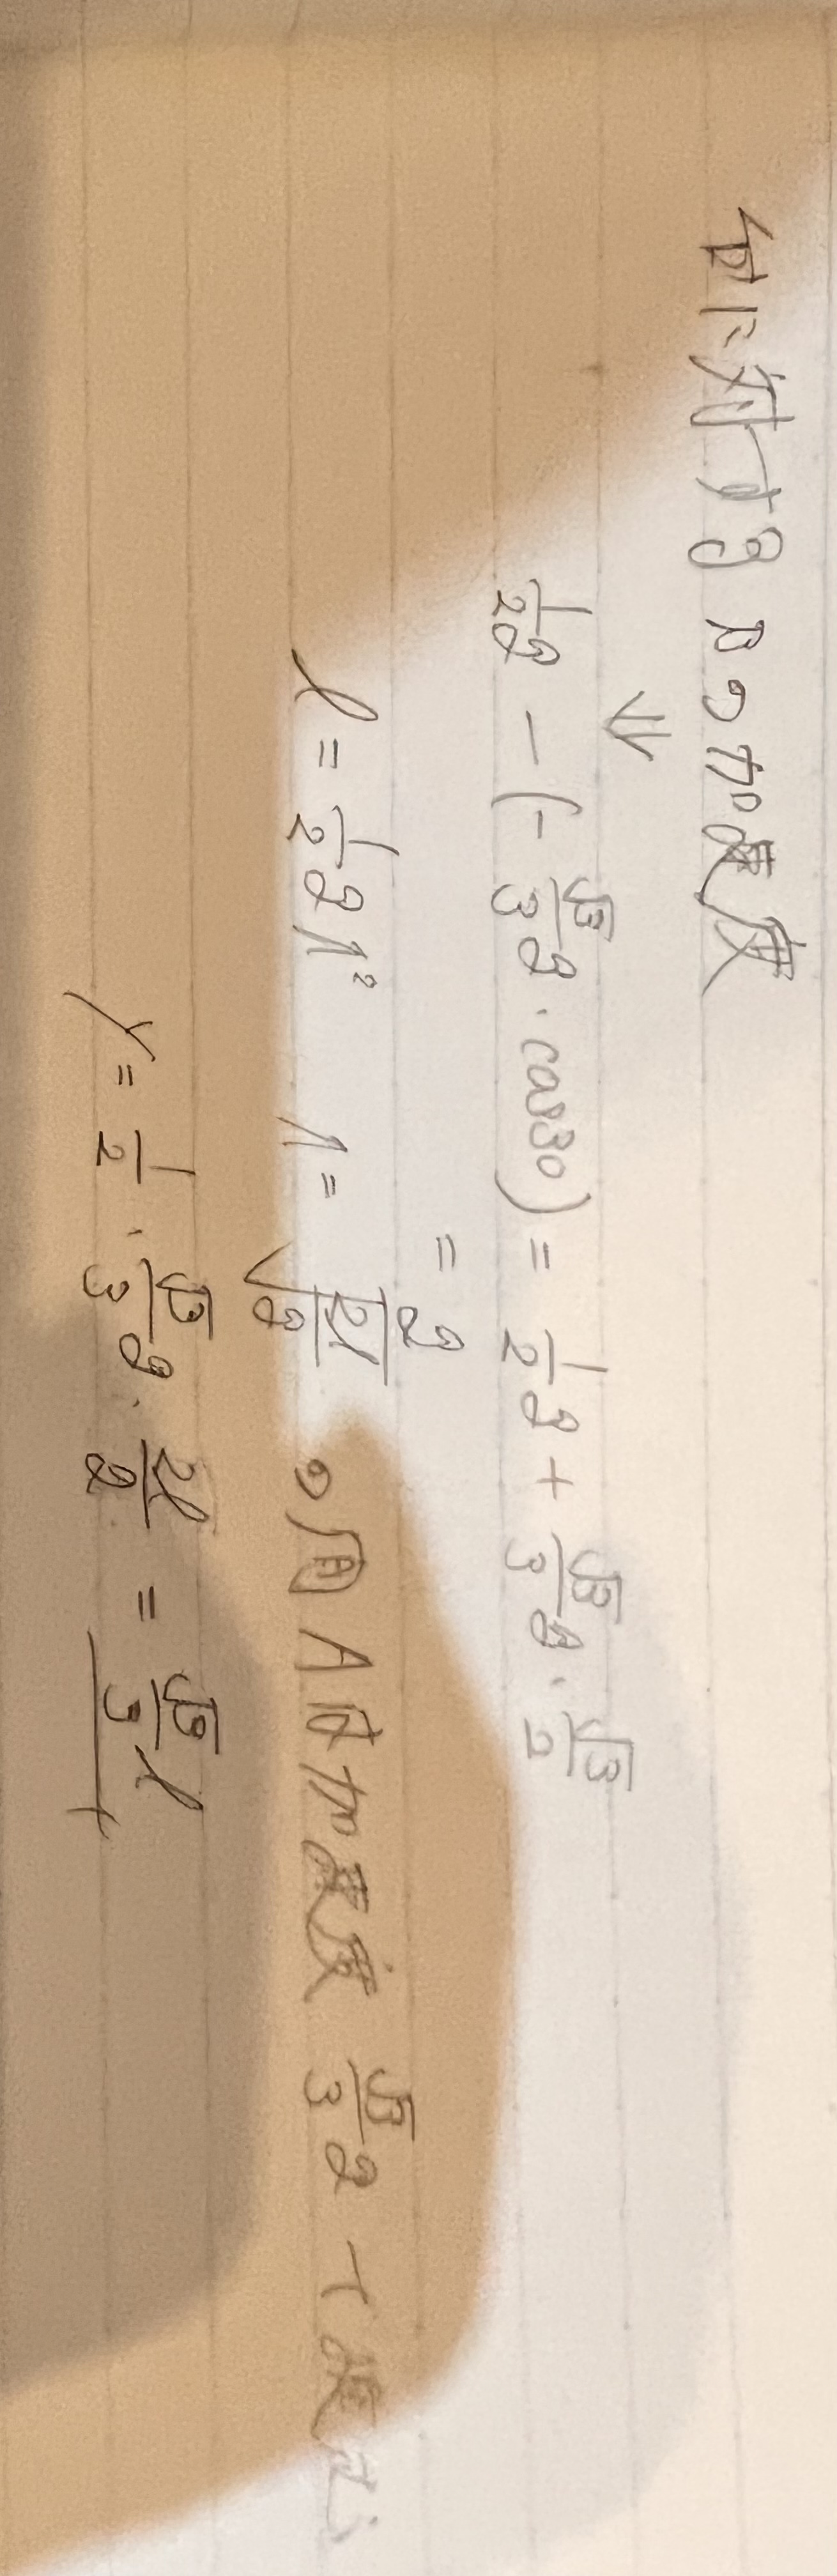 Aに対するBの加速度
⇓
1/2 g - (-√3/3 g・cos30) = 1/2 g + √3/3 g・√3/2
= g
l = 1/2 g t² t = √(2l/g) の間Aは加速度 √3/3 g で運動
x = 1/2・√3/3 g・2l/g = √3/3 l